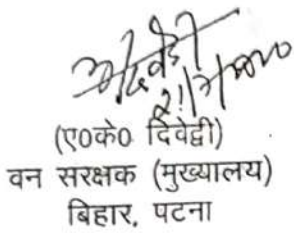 (ए०के० दिवेद्वी)
वन सरक्षक (मुख्यालय)
बिहार, पटना